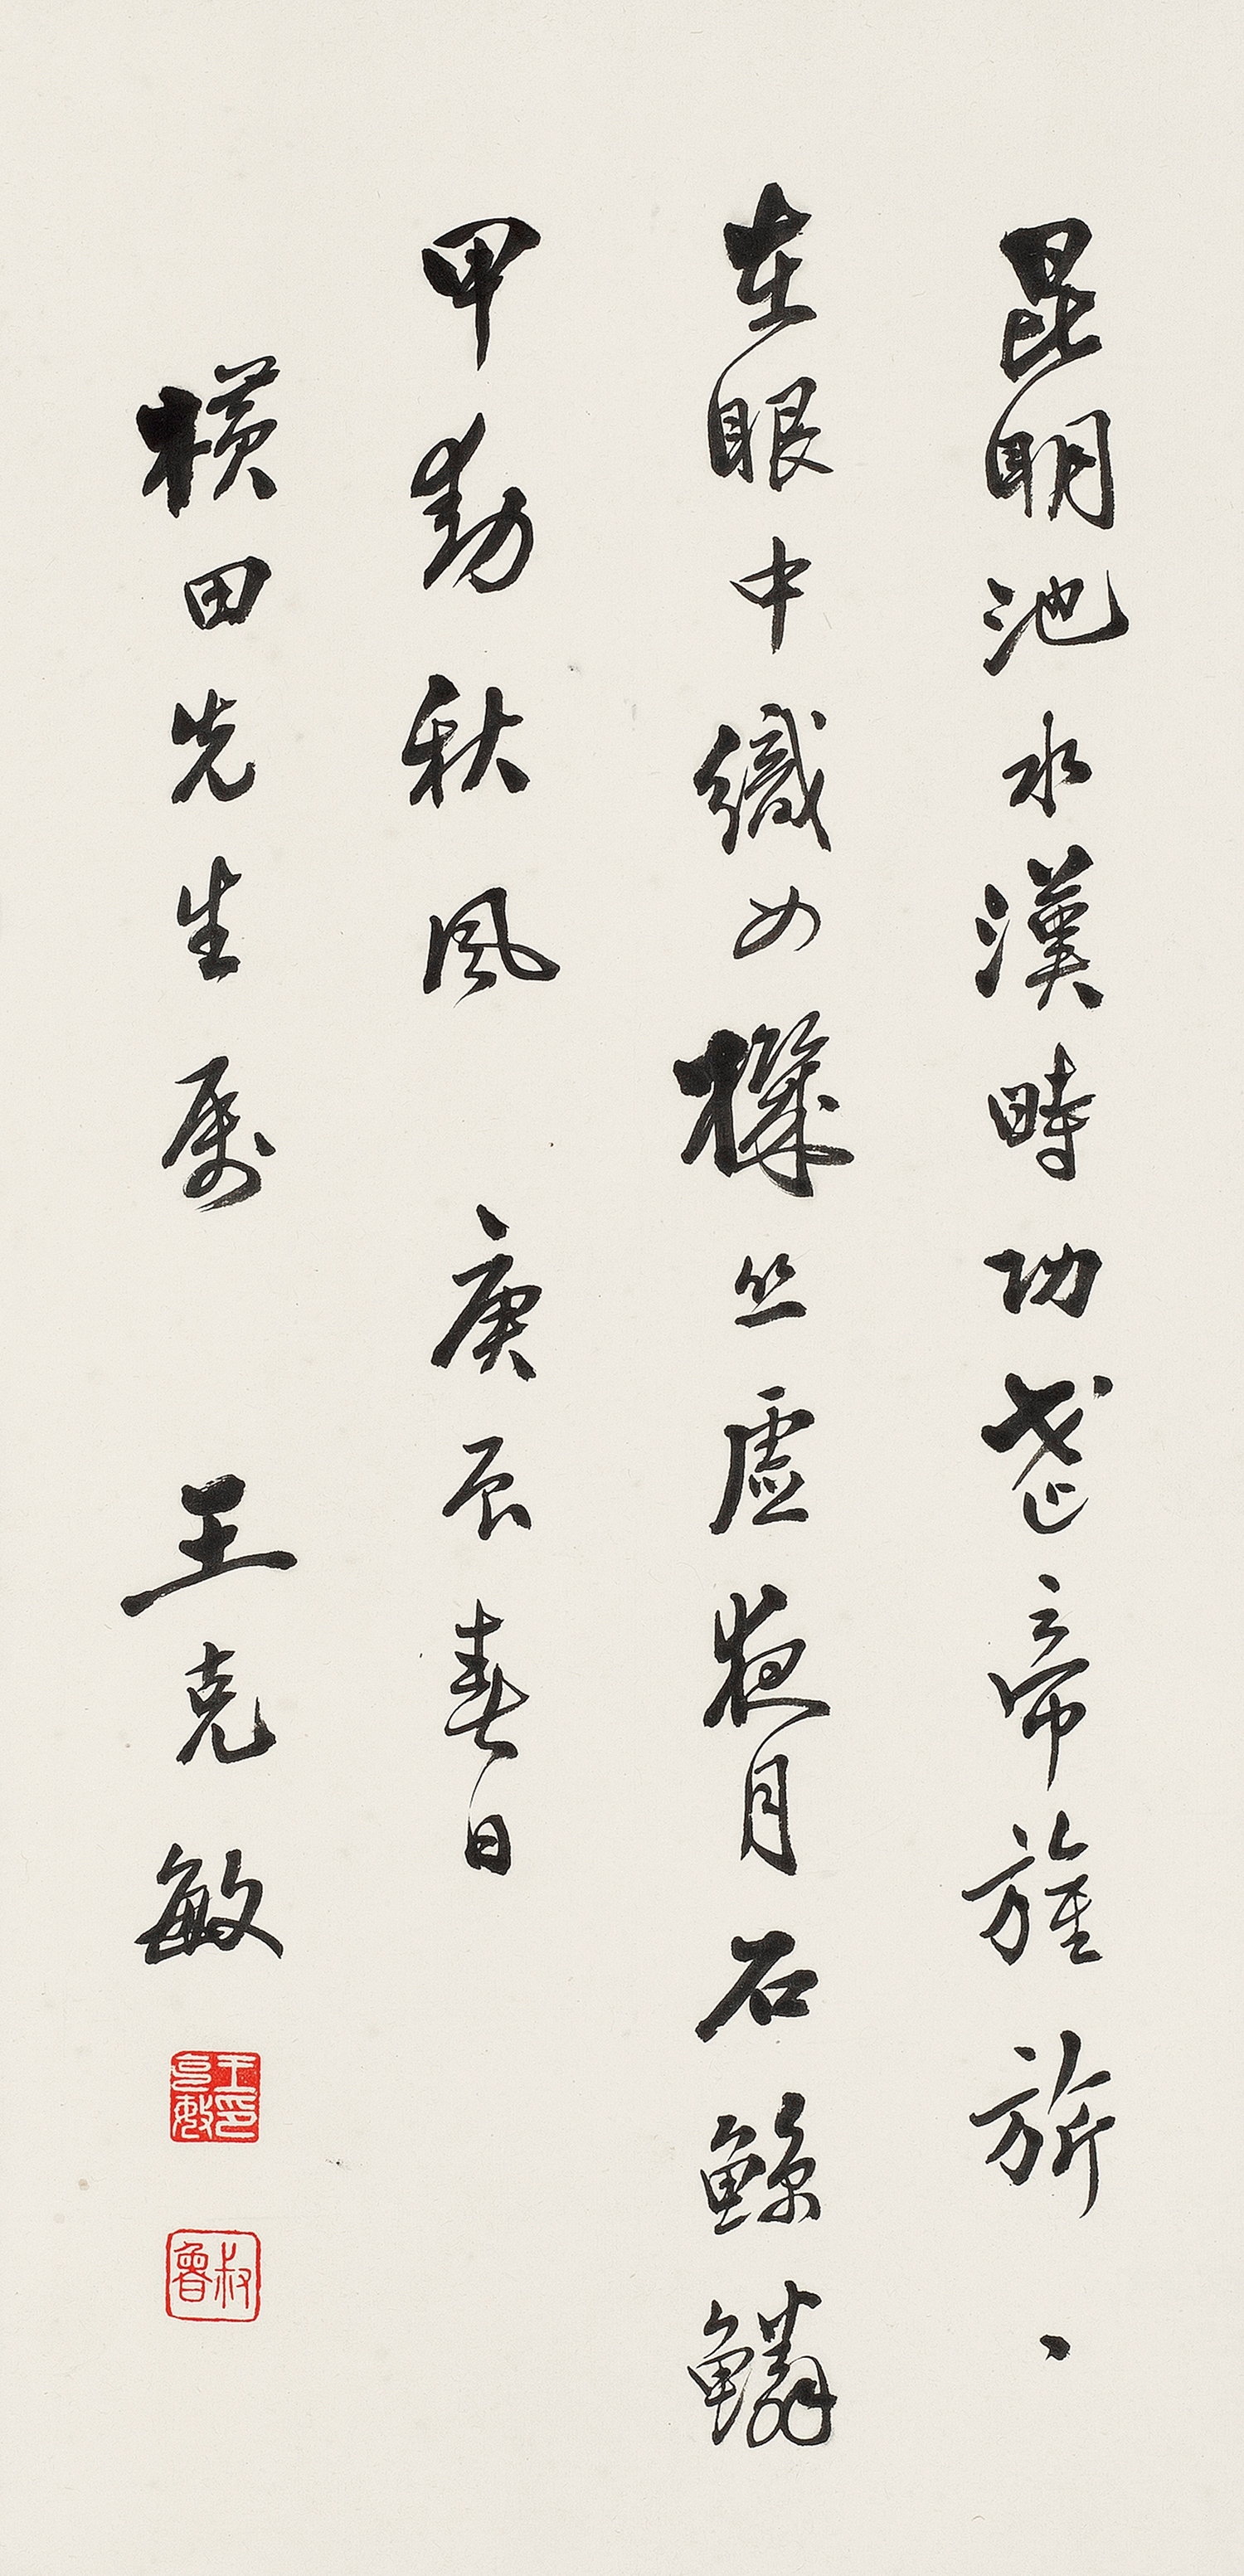 昆明池水漢時功武帝旌旂、
在眼中織女機丝虚夜月石鯨鱗
甲動秋風 庚辰春日
橫田先生属 王克敏
王印克敏
叔魯